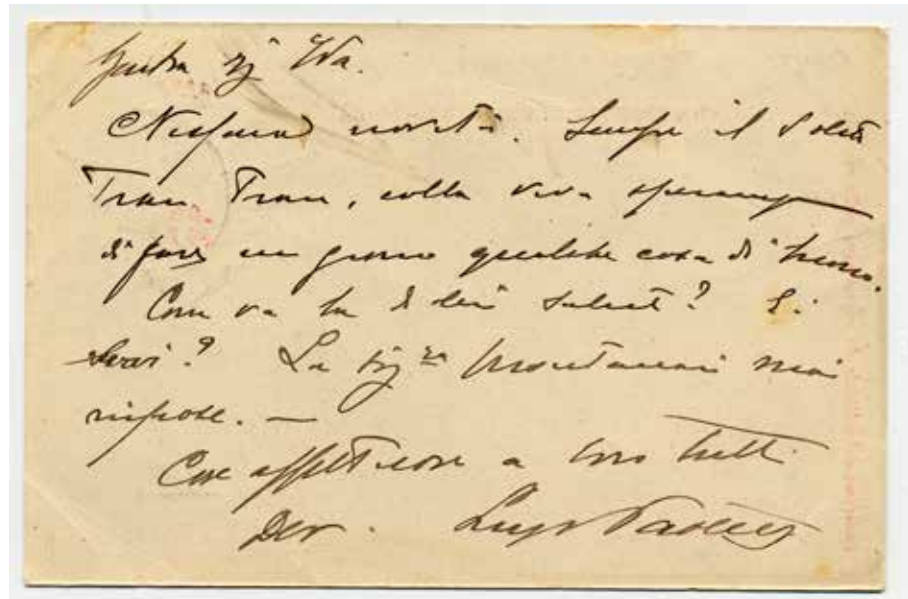 Gentra Sig Ida.
Nessuna novità. Sempre il solito
Tran Tran, colla viva speranza
di fare un giorno qualche cosa di buono.
Come va la di lei salute? E i
? La Sigra Montanari mai
rispose. —
Cose affettuose a Loro tutti
Dev. Luigi